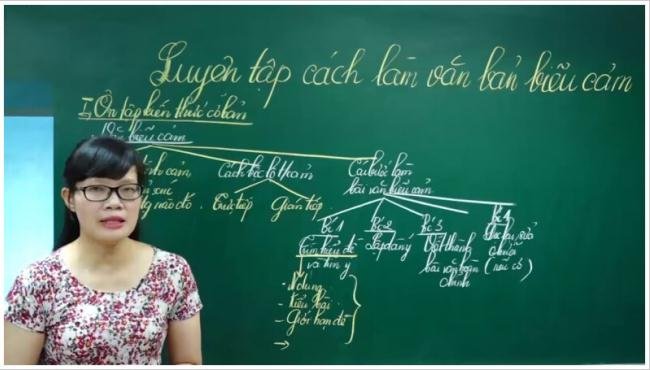 Luyện tập cách làm văn bản biểu cảm
I, Ôn tập kiến thức cơ bản
biểu cảm
cảm,
Cách bộc lộ
Các bước làm
bài văn biểu cảm
nào đó.
Trực tiếp
Gián tiếp
B1
B2
B3
B4
Tìm hiểu đề
và tìm ý
Lập dàn ý
thành
bài văn hoàn
chỉnh
Đọc lại, sửa
chữa
(nếu có)
dung
- Kiểu bài
- Giới hạn đề
→